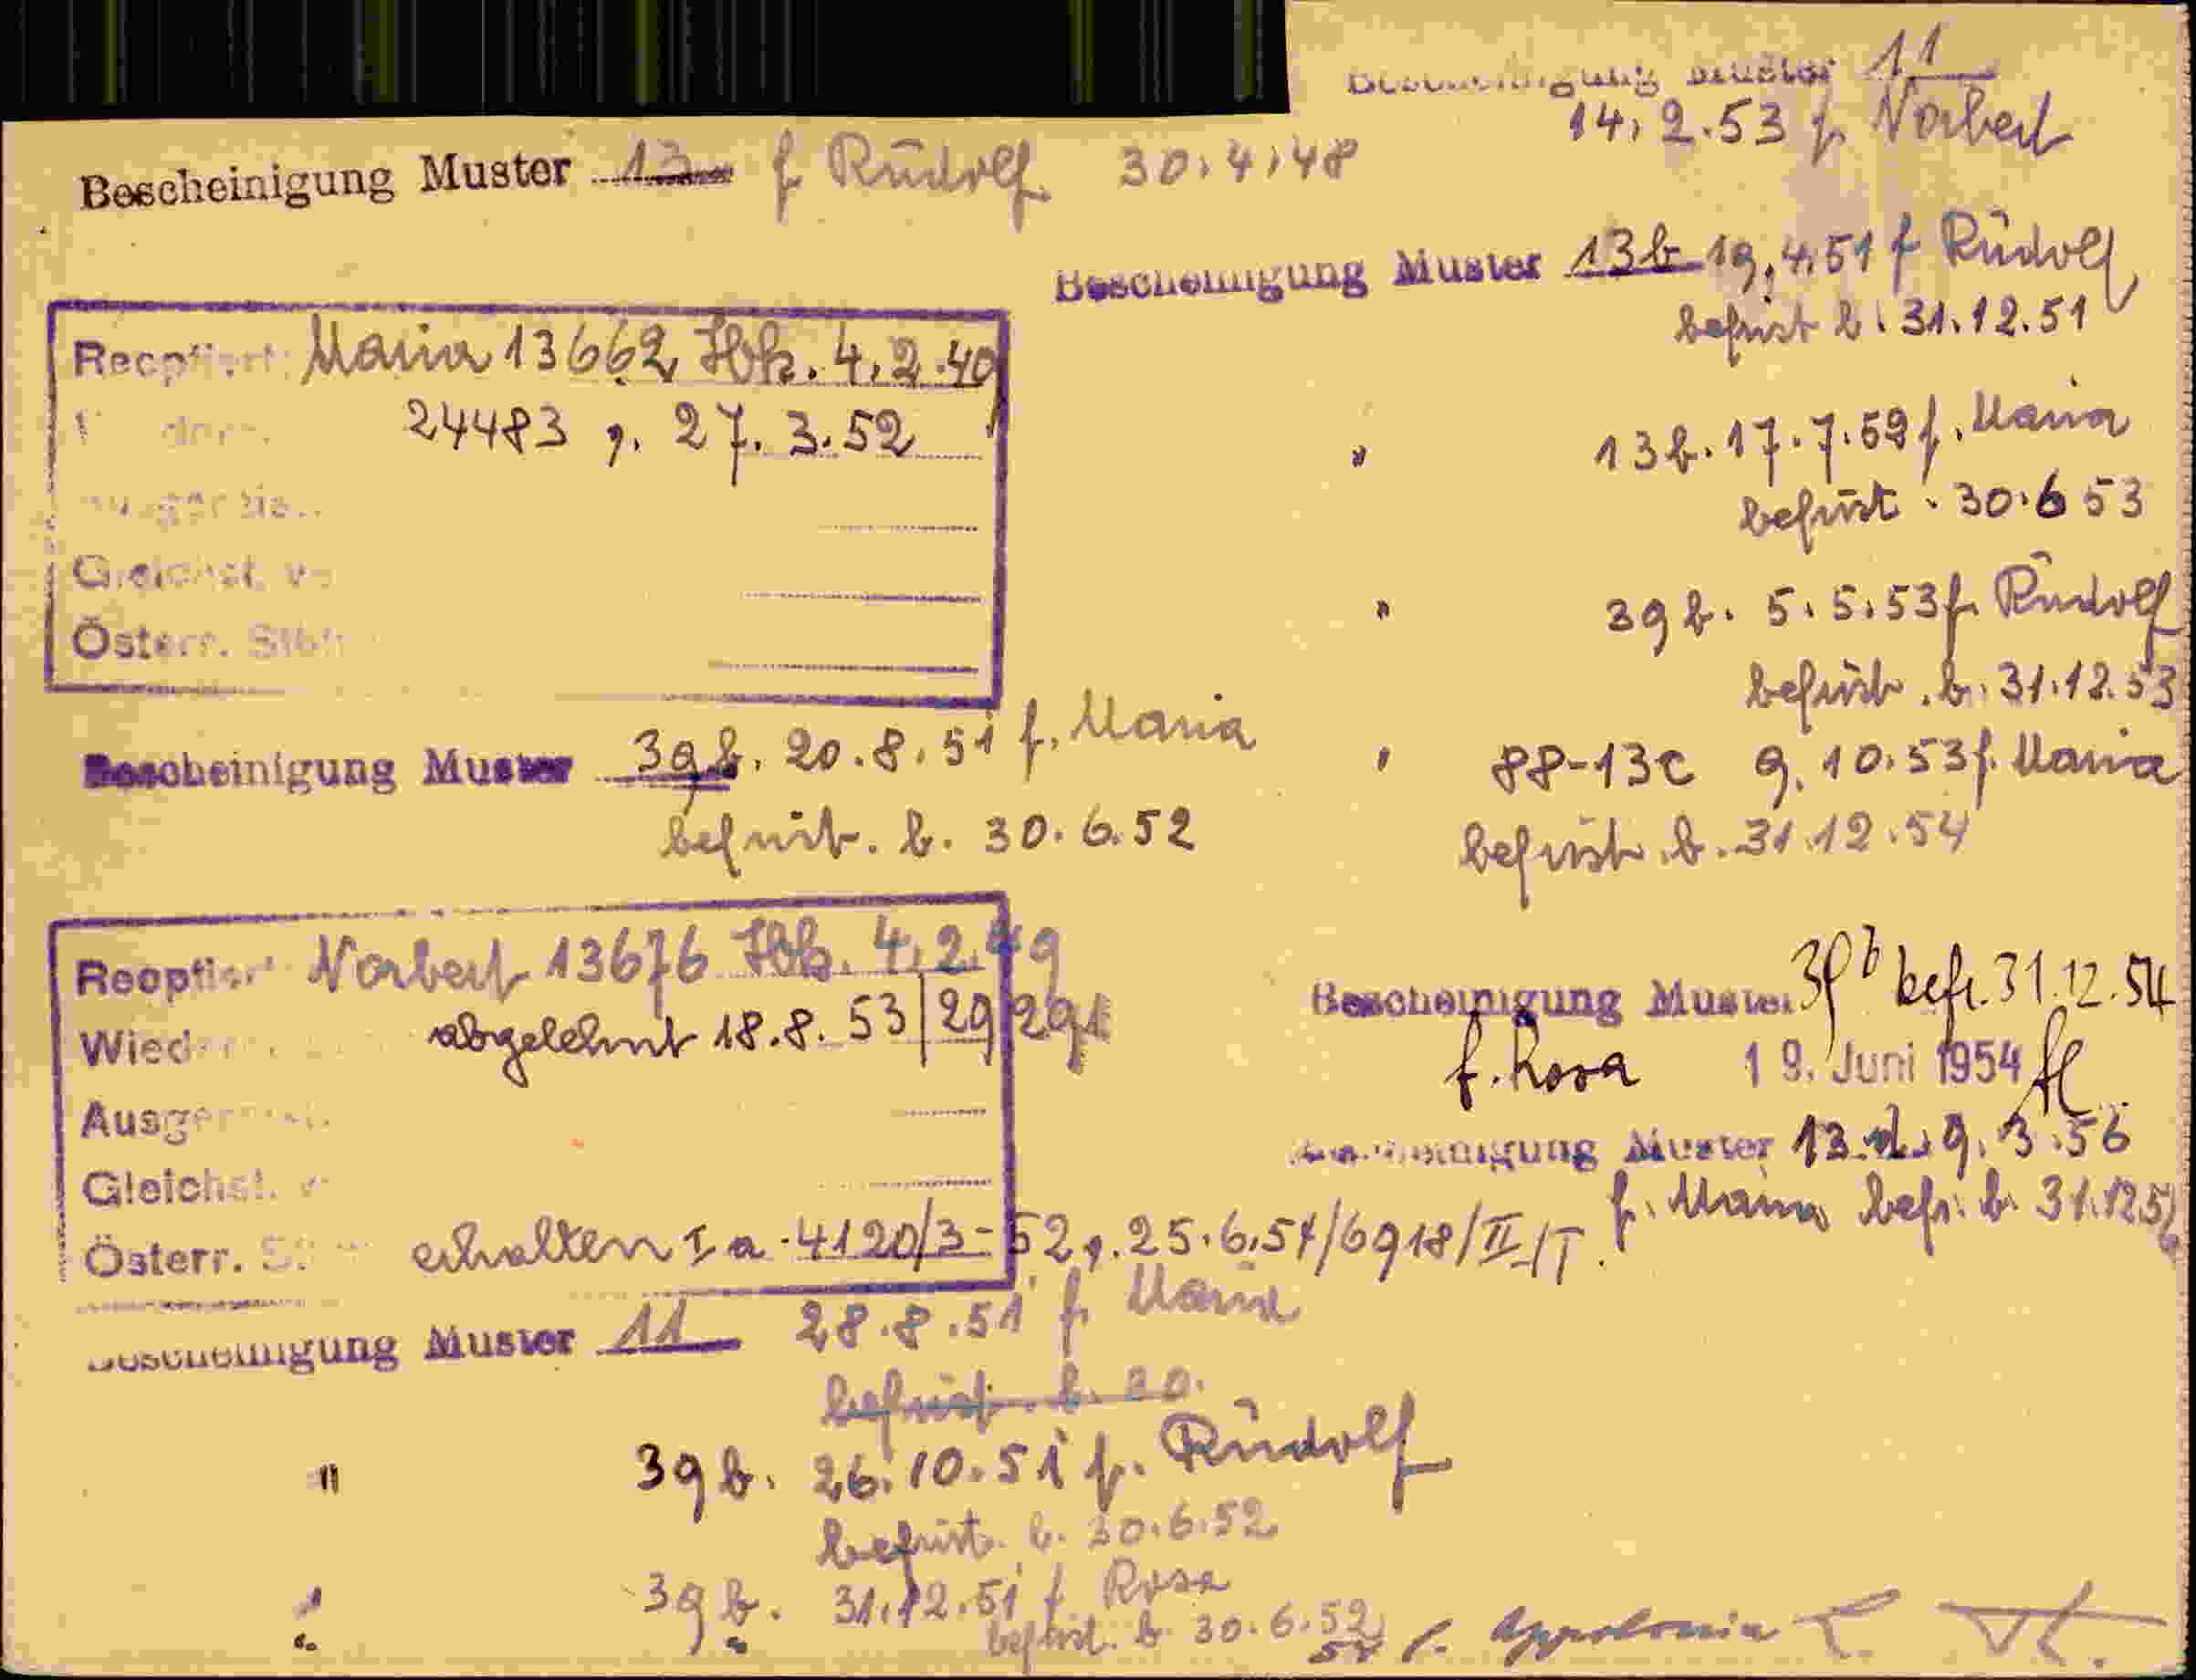 Bescheinigung Muster 11
14. 2. 53 f. Norbert
Bescheinigung Muster 13 f Rudolf 30. 4. 48
Bescheinigung Muster 13b 19. 4. 51 f Rudolf
befrist b. 31.12.51
Reoptiert: Maria 13662 Hbk. 4. 2. 40
24483 g. 27. 3. 52
Gleichst. v
Österr. Stb
" 13b. 17. 7. 52 f. Maria
befrist . 30. 6 53
" 39b. 5. 5. 53 f. Rudolf
befrist. b. 31.12.53
Bescheinigung Muster 39b. 20. 8. 51 f. Maria
befrist. b. 30. 6. 52
" 88-13c 9. 10. 53 f. Maria
befrist. b. 31.12.54
Reoptiert Norbert 13676 Hbk. 4. 2. 49
Wied abgelehnt 18. 8. 53/29/291
Ausger
Gleichst. v
Österr. S erhalten I a - 4120/3 - 52 g. 25. 6. 54/6918/II/T.
Bescheinigung Muster 39b befr. 31.12.54
f. Rosa 19. Juni 1954
Bescheinigung Muster 13 9. 3. 56
f. Maria befr. b. 31.12.5
Bescheinigung Muster 11 28. 8. 51 f. Maria
befrist. b. 30.
" 39b. 26. 10. 51 f. Rudolf
befrist. b. 30. 6. 52
" 39b. 31.12.51 f Rosa
befrist. b 30. 6. 52
54 f. Appolonia